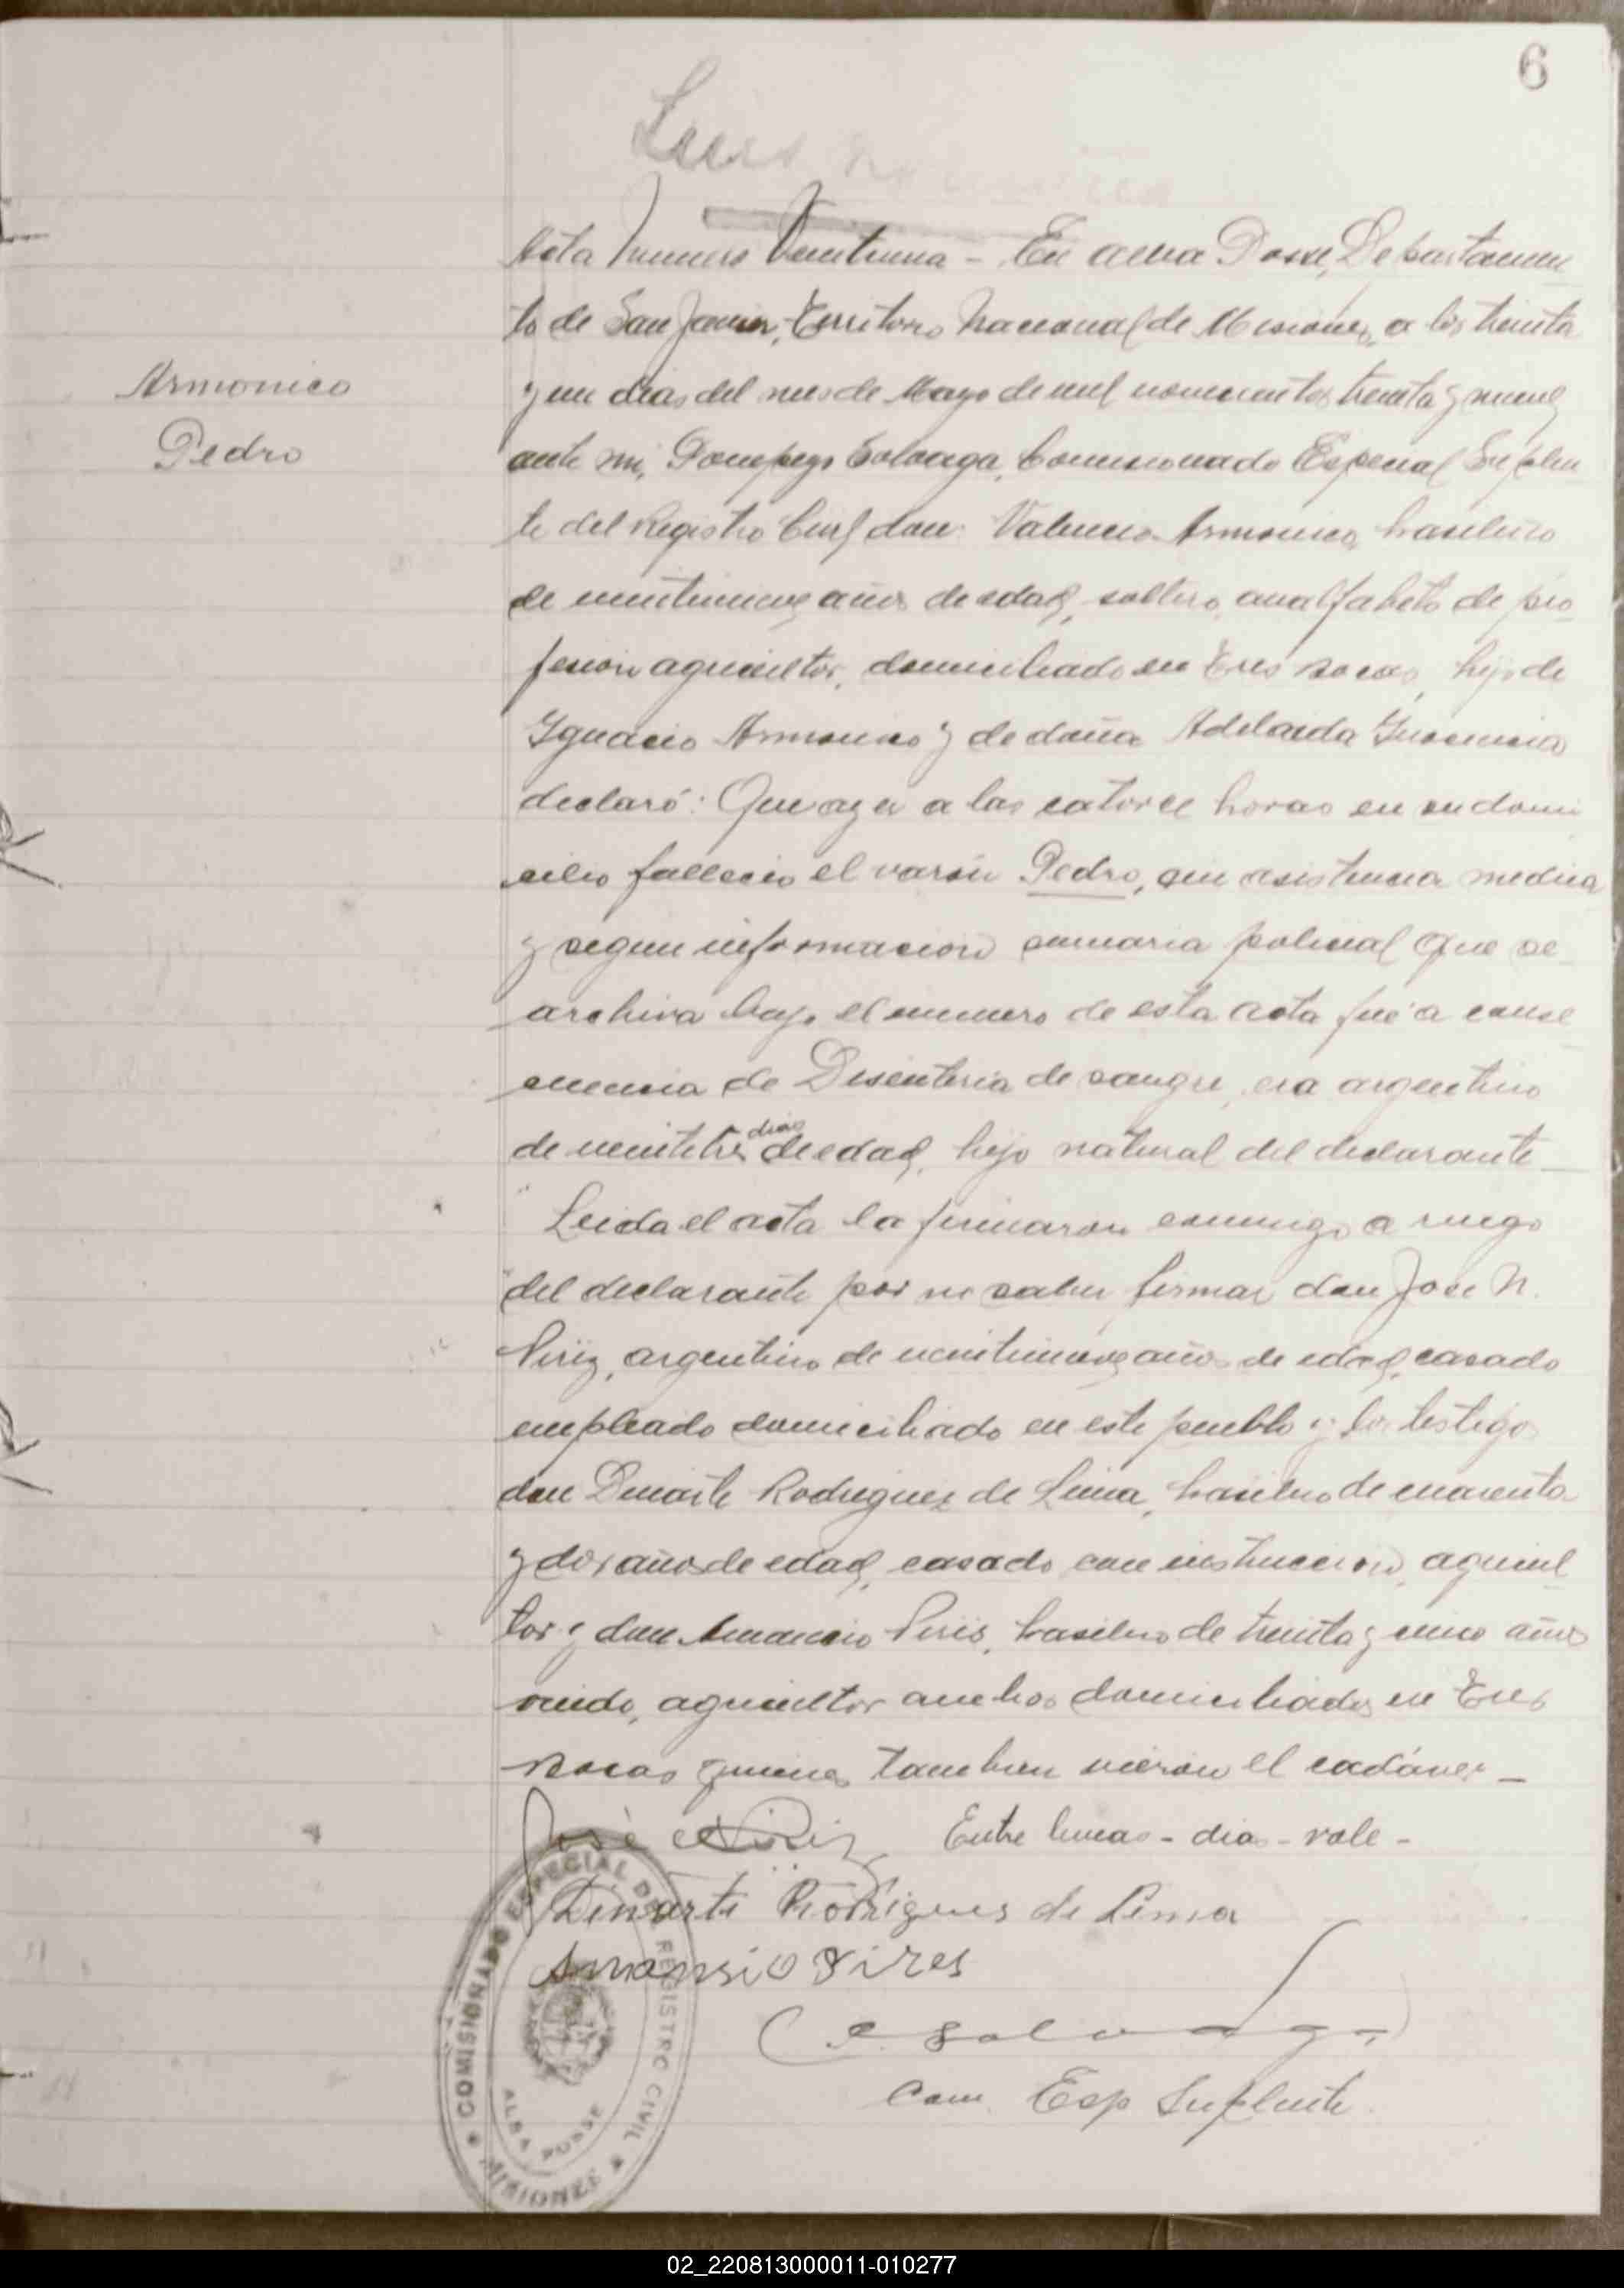 6
Luis
Acta Numero Veintiuna - En Alba Posse, Departamen
to de San Javier, Territorio Nacional de Misiones, a los treinta
y un dias del mes de Mayo de mil novecientos treinta y nueve
ante mi, Pompeyo Galvaga, Comisionado Especial Suplen
te del Registro Civil don: Valencio Armonico, brasilero
de veintinueve años de edad, soltero, analfabeto de pro
fesion agricultor, domiciliado en Tres Bocas, hijo de
Armonico
Pedro
Ignacio Armonico y de doña Adelaida
declaró: Que ayer a las catorce horas en su domi
cilio fallecio el varón Pedro, sin asistencia medica
y segun informacion sumaria policial que se
archiva bajo el numero de esta acta fue a conse
cuencia de Disenteria de sangre, era argentino
de veintetres dias de edad, hijo natural del declarante
Leida el acta la firmaron conmigo a ruego
del declarante por no saber firmar don Jose N.
Piriz, argentino de veintinueve años de edad, casado
empleado domiciliado en este pueblo y los testigos
don Dinarte Rodriguez de Lima, brasilero de cuarenta
y dos años de edad, casado con instruccion, agricul
tor y don Amancio Piris, brasilero de treinta y cinco años
viudo, agricultor ambos domiciliados en Tres
Bocas quienes tambien vieron el cadáver -
José N Piriz Entre lineas - dias - vale -
Dinarte Rodrigues de Lima
Amansio Pires
Com. Esp Suplente
COMISIONADO ESPECIAL DE REGISTRO CIVIL
ALBA POSSE
MISIONES
02_220813000011-010277